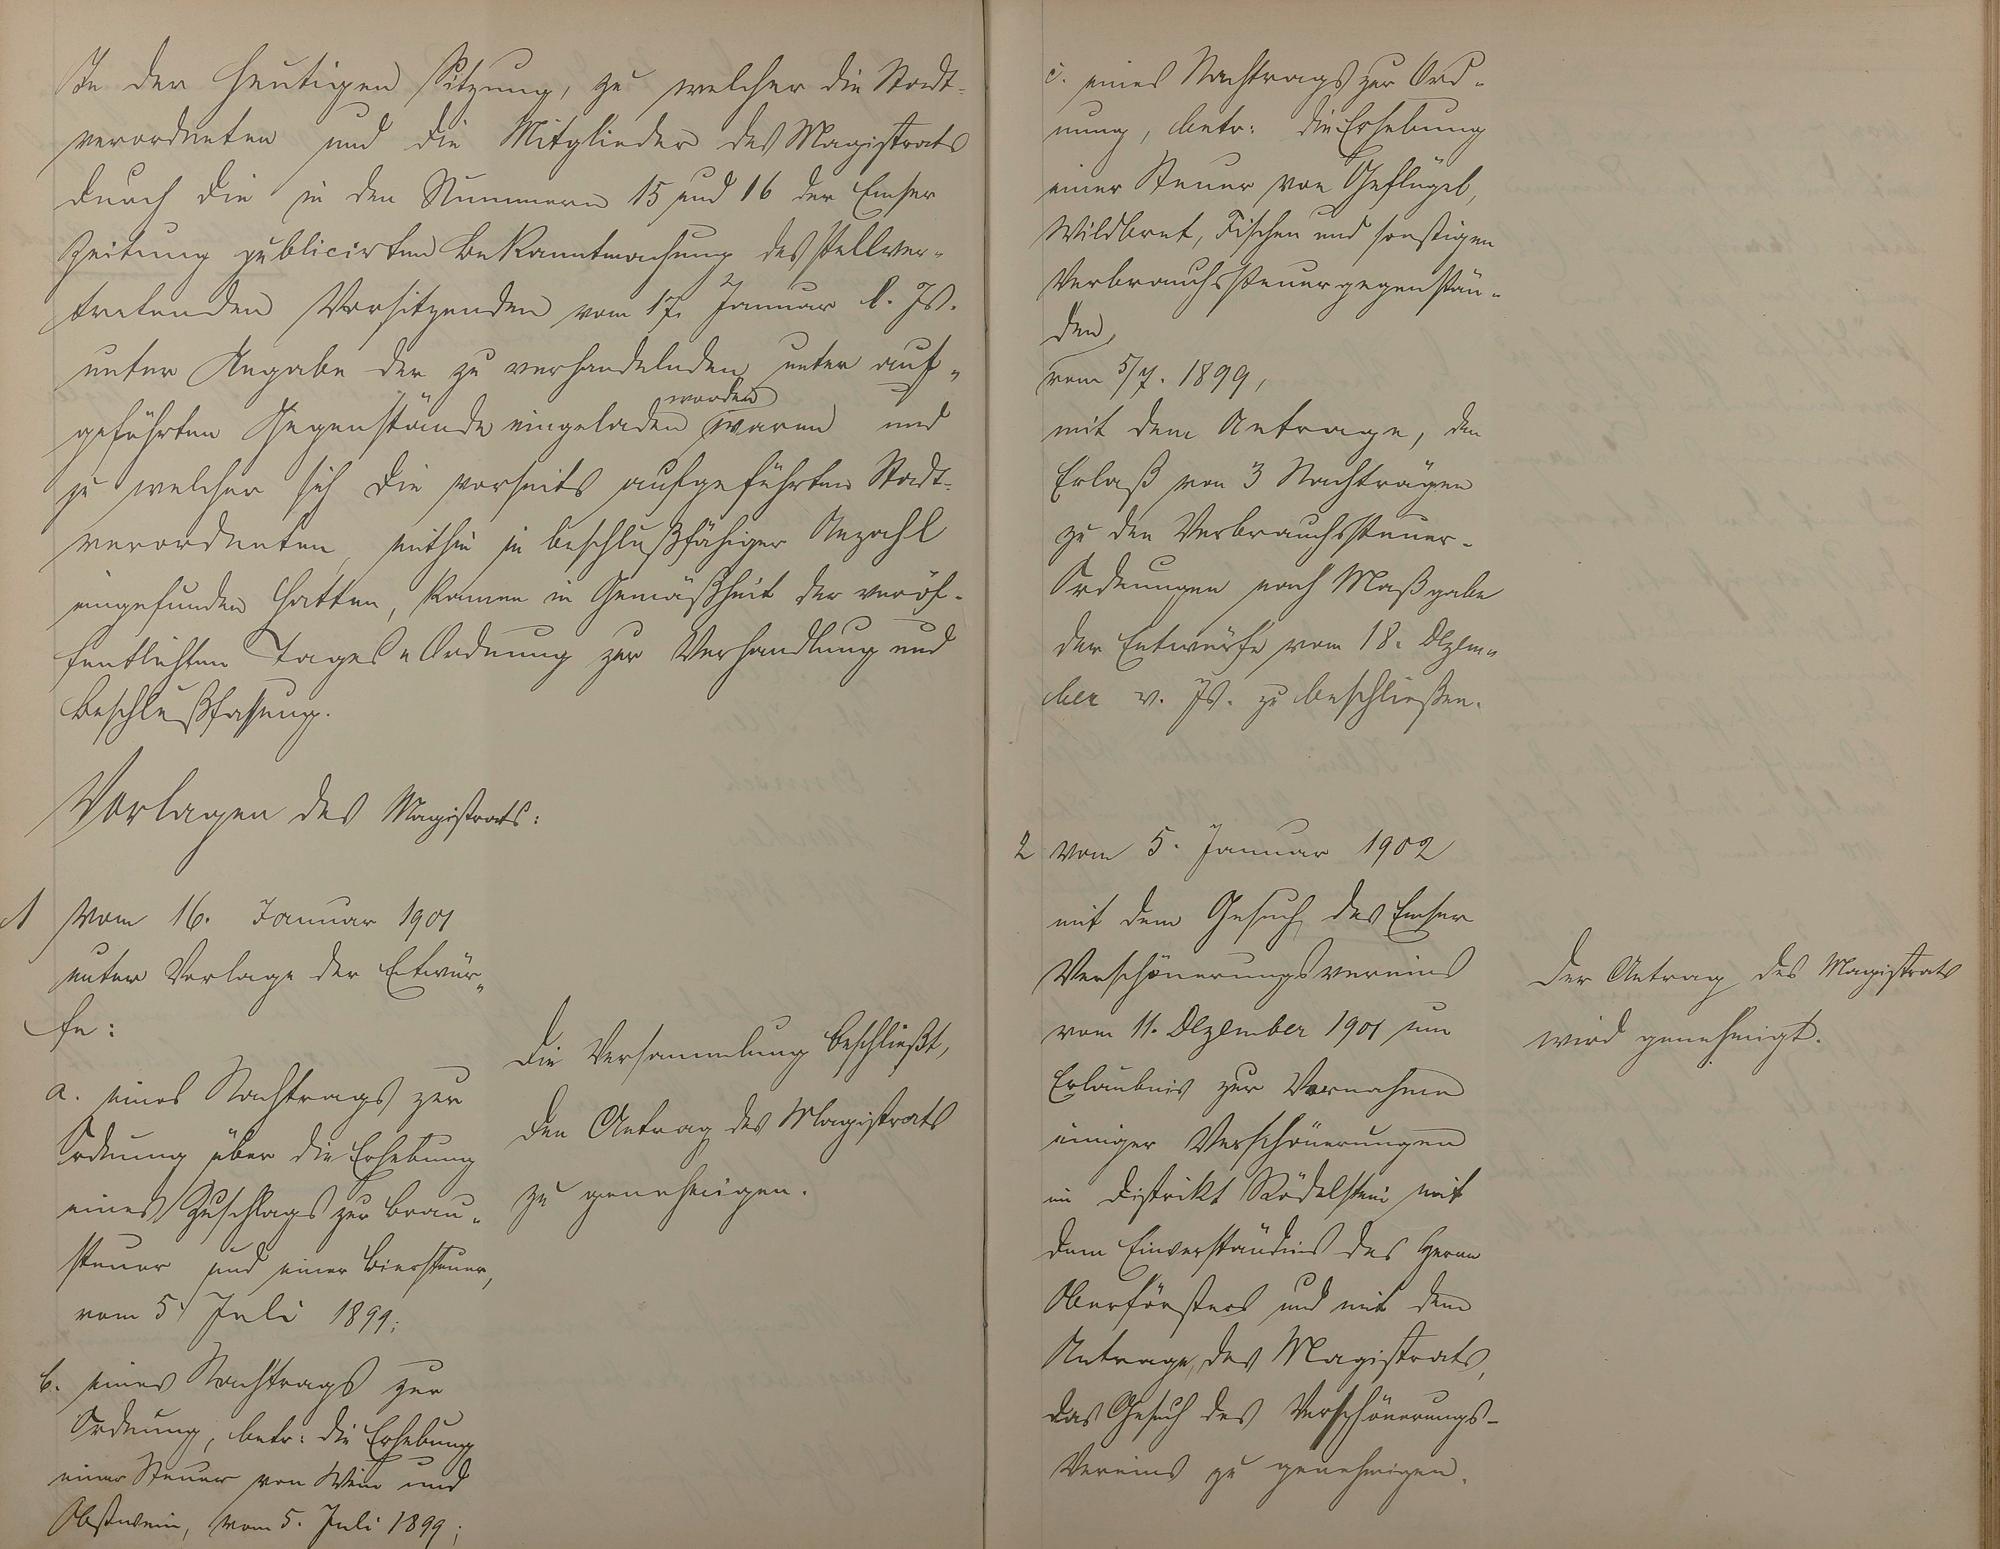 In der heutigen Sitzung, zu welcher die Stadt-
verordneten und die Mitglieder des Magistrats
durch die in den Nummern 15 und 16 der Emser
Zeitung publicirten Bekanntmachung des stellver-
tretenden Vorsitzenden vom 17. Januar l. Js.
unter Angabe der zu verhandelnden unten auf-
geführten Gegenstände eingeladen worden waren und
zu welcher sich die vorseits aufgeführten Stadt-
verordneten, mithin in beschlußfähiger Anzahl
eingefunden hatten, kamen in Gemäßheit der veröf-
fentlichten Tages-Ordnung zur Verhandlung und
Beschlußfassung.
Vorlagen des Magistrats:
1 Vom 16. Januar 1901
unter Vorlage der Entwür-
fe:
a. eines Nachtrags zur
Ordnung über die Erhebung
eines Zuschlags zur Brau-
steuer und einer Biersteuer,
vom 5. Juli 1899;
b. eines Nachtrags zur
Ordnung, betr: die Erhebung
einer Steuer von Wein und
Obstwein, vom 5. Juli 1899;
Die Versammlung beschließt,
den Antrag des Magistrats
zu genehmigen.
c. eines Nachtrags zur Ord-
nung, betr: die Erhebung
einer Steuer von Geflügel,
Wildbret, Fischen und sonstigen
Verbrauchssteuergegenstän-
den,
vom 5/7. 1899,
mit dem Antrage, den
Erlaß von 3 Nachträgen
zu den Verbrauchssteuer-
Ordnungen nach Maßgabe
der Entwürfe vom 18. Dezem-
ber v. Js. zu beschließen.
2 Vom 5. Januar 1902
mit dem Gesuch des Emser
Verschönerungsvereins
vom 11. Dezember 1901 um
Erlaubnis zur Vornahme
einiger Verschönerungen
im Distrikt Rödelstein mit
dem Einverständnis des Herrn
Oberförsters und mit dem
Antrage des Magistrats,
das Gesuch des Verschönerungs-
Vereins zu genehmigen.
Der Antrag des Magistrats
wird genehmigt.